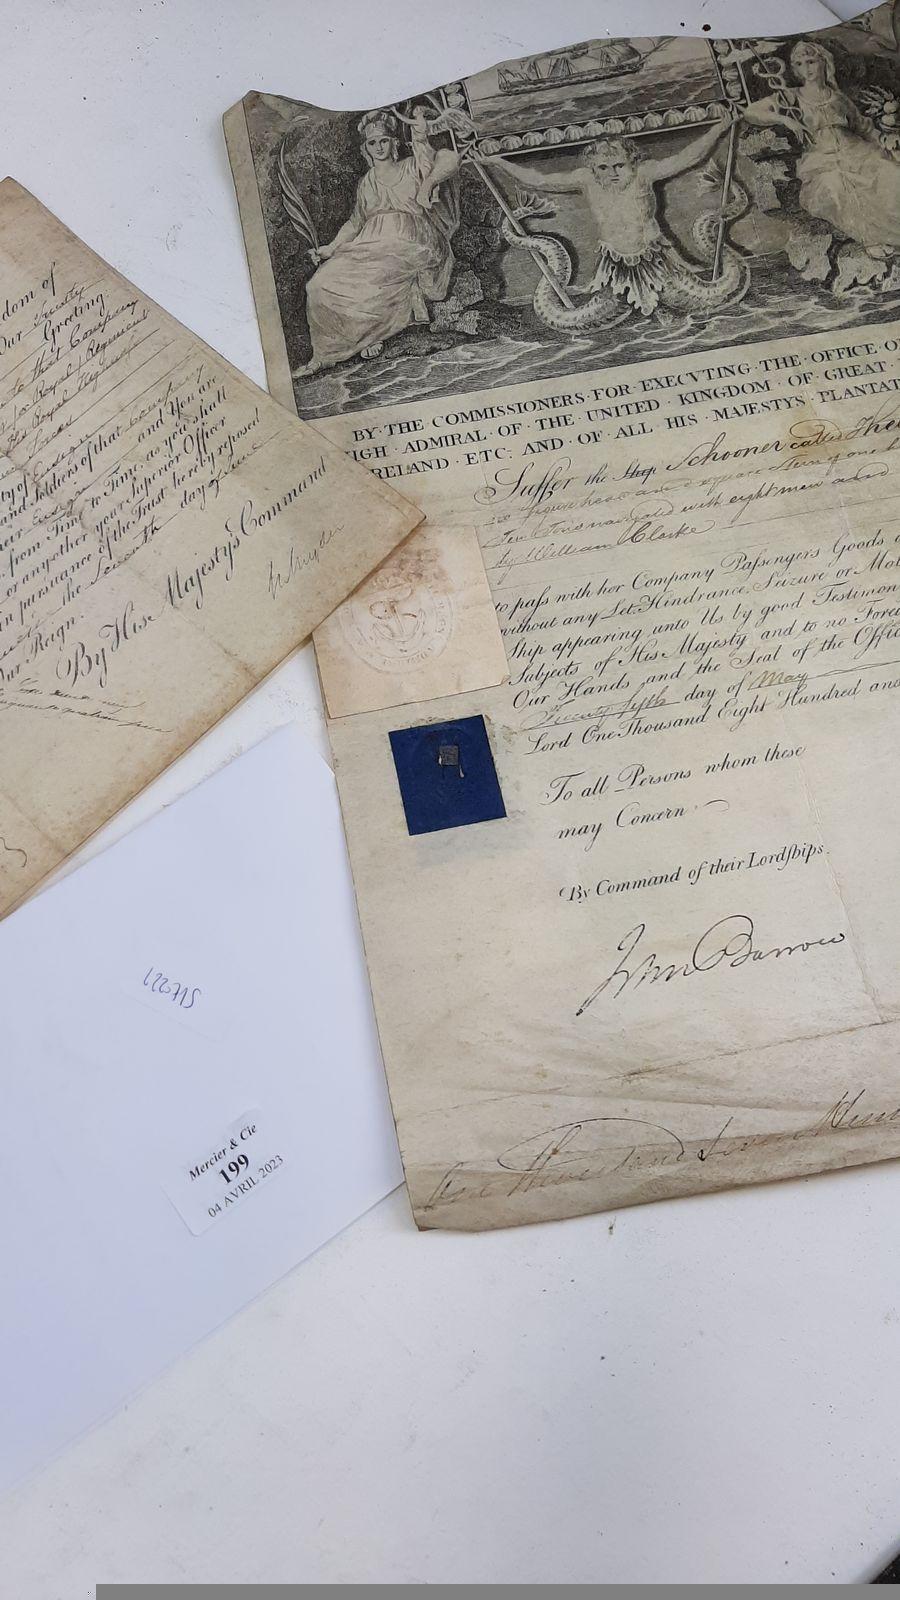 dom of
Our Trusty
Greeting
to that Company
Royal Regiment
His Royal Highness
Company
and Soldiers of that
and You are
from Time to Time, as you shall
or any other your Superior Officer
in pursuance of the Trust hereby reposed
the Seventh day of June
Our Reign.
By His Majesty's Command
BY · THE · COMMISSIONERS · FOR · EXECVTING · THE · OFFICE · O
IGH · ADMIRAL · OF · THE · UNITED · KINGDOM · OF · GREAT ·
RELAND · ETC; AND · OF · ALL · HIS · MAJESTYS · PLANTAT
Suffer the Ship Schooner called The
no figure head and a square Stern of one h
Ten Tons navigated with eight men and
by William Clarke
to paſs with her Company Paſsengers Goods
without any Let, Hindrance, Seizure or Mol
Ship appearing unto Us by good Testimon
Subjects of His Majesty and to no Forei
Our Hands and the Seal of the Offic
Twenty fifth day of May
Lord One Thousand Eight Hundred and
To all Persons whom these
may Concern
By Command of their Lordſhips.
Jno. Barrow
One Thousand Seven Hun
Mercier & Cie
199
04 AVRIL 2023